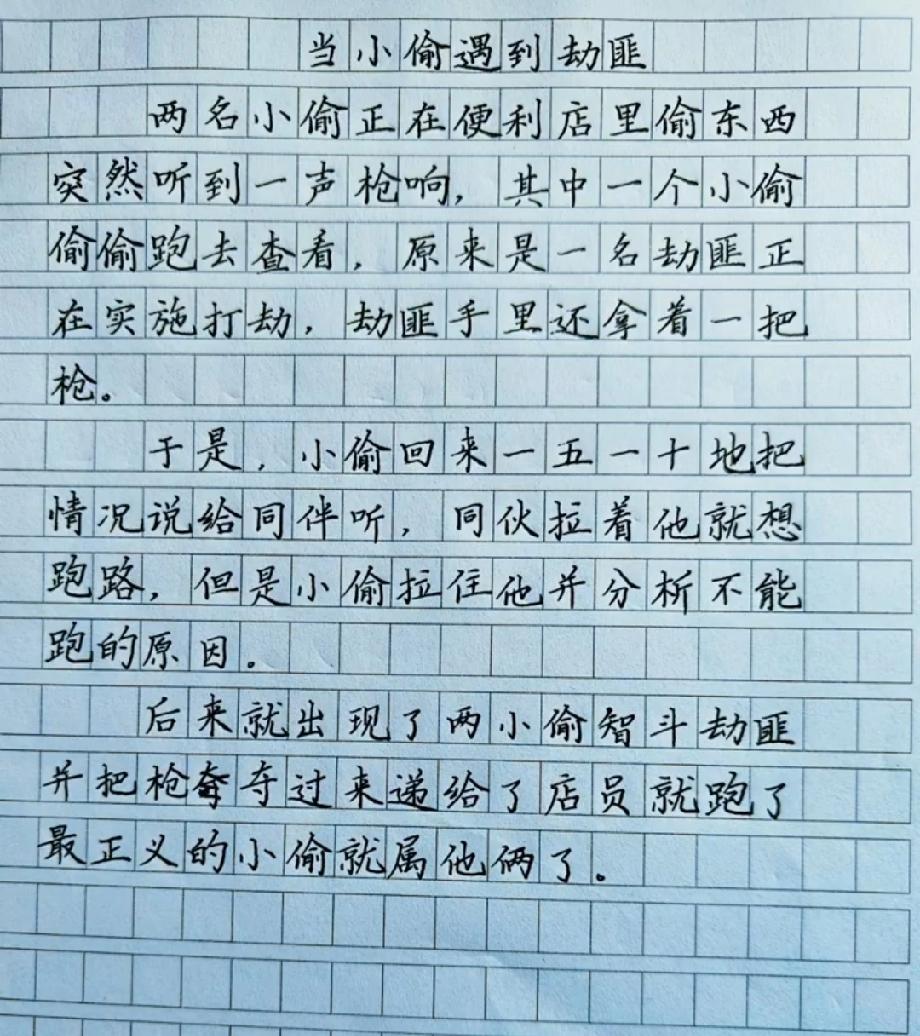 当小偷遇到劫匪
两名小偷正在便利店里偷东西
突然听到一声枪响，其中一个小偷
偷偷跑去查看，原来是一名劫匪正
在实施打劫，劫匪手里还拿着一把
枪。
于是，小偷回来一五一十地把
情况说给同伴听，同伙拉着他就想
跑路，但是小偷拉住他并分析不能
跑的原因。
后来就出现了两小偷智斗劫匪
并把枪夺过来递给了店员就跑了
最正义的小偷就属他俩了。